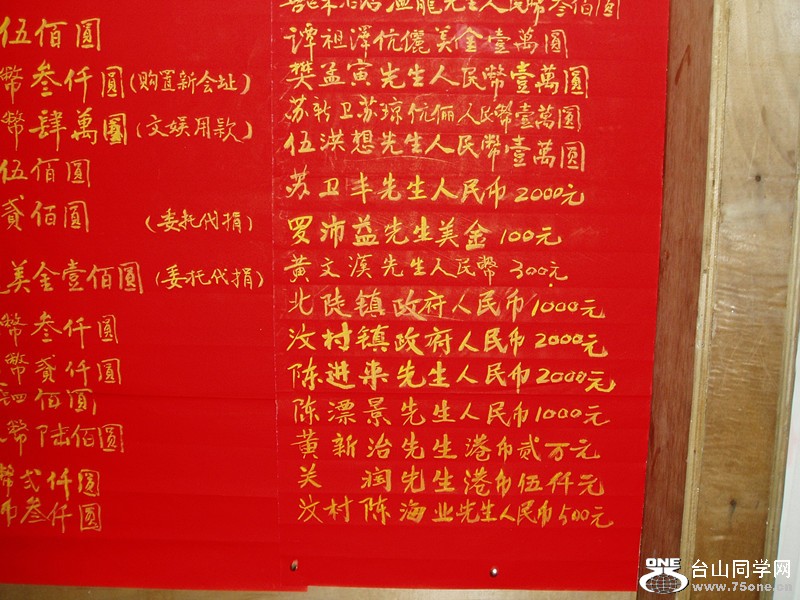 伍佰圆
幣叁仟圆(购置新会址)
幣肆萬圆(文娱用款)
伍佰圆
貳佰圆 (委托代捐)
美金壹佰圆(委托代捐)
幣叁仟圆
幣貳仟圆
四佰圆
幣陆佰圆
幣弍仟圆
币叁仟圆
先生人民幣叁佰圆
谭祖澤伉儷美金壹萬圆
樊孟寅先生人民幣壹萬圆
苏新卫苏琼伉俪人民幣壹萬圆
伍洪想先生人民幣壹萬圆
苏卫丰先生人民币2000元
罗沛益先生美金100元
黄文漢先生人民幣300元
北陡镇政府人民币1000元
汶村镇政府人民币2000元
陈进来先生人民币2000元
陈漂景先生人民币1000元
黄新治先生港币贰万元
关 润先生港币伍仟元
汶村陈海业先生人民币500元
ONE
台山同学网
www.75one.cn